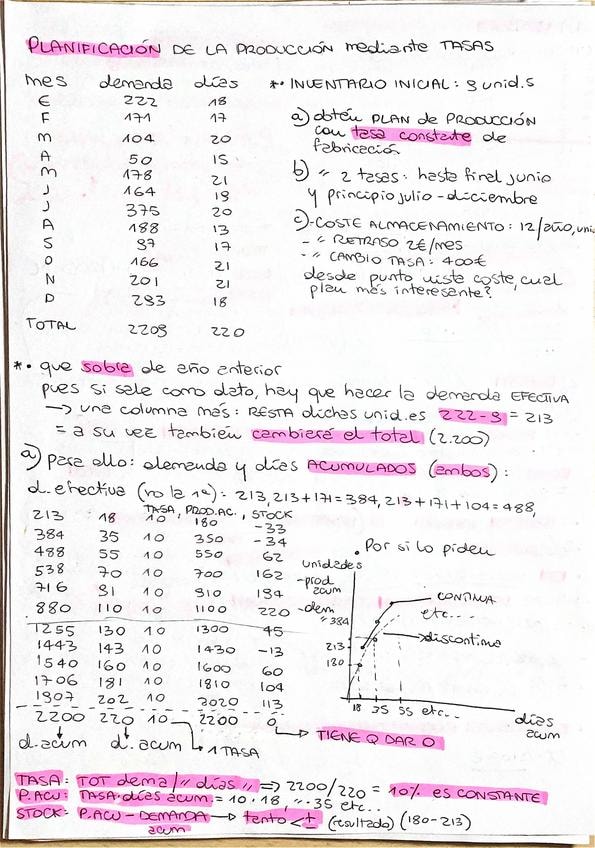 PLANIFICACIÓN DE LA PRODUCCIÓN mediante TASAS
mes demanda días
E 222 18
F 171 17
M 104 20
A 50 15
M 178 21
J 164 19
J 375 20
A 188 13
S 97 17
O 166 21
N 201 21
D 293 18
TOTAL 2209 220
*• INVENTARIO INICIAL: 9 unid.s
a) obtén PLAN de PRODUCCIÓN
con tasa constante de
fabricación
b) " 2 tasas: hasta final junio
y principio julio - diciembre
c) - COSTE ALMACENAMIENTO: 12/año, uni
- " RETRASO 2€/mes
- " CAMBIO TASA: 400€
desde punto vista coste, cual
plan más interesante?
*• que sobra de año anterior
pues si sale como dato, hay que hacer la demanda EFECTIVA
→ una columna más: RESTA dichas unid.es 222-9 = 213
= a su vez también cambiará el total (2.200)
a) para ello: demanda y días ACUMULADOS (ambos):
d. efectiva (no la 1ª): 213, 213+171=384, 213+171+104=488,
TASA, PROD.AC., STOCK
213 18 10 180 -33
384 35 10 350 -34
488 55 10 550 62
538 70 10 700 162
716 91 10 910 194
880 110 10 1100 220
1255 130 10 1300 45
1443 143 10 1430 -13
1540 160 10 1600 60
1706 181 10 1810 104
1907 202 10 2020 113
2200 220 10 2200 0
d.acum d.acum → 1 TASA
→ TIENE Q DAR 0
• Por si lo piden
unidades
-prod
acum
-dem
" 384
213
180
CONTINUA
etc...
discontinua
18 35 55 etc..
días
acum
TASA: TOT dema/" días " ⇒ 2200/220 = 10% es CONSTANTE
P.ACU: TASA·días acum. = 10·18, "·35 etc..
STOCK: P.ACU - DEMANDA → tanto <± (resultado) (180-213)
acum